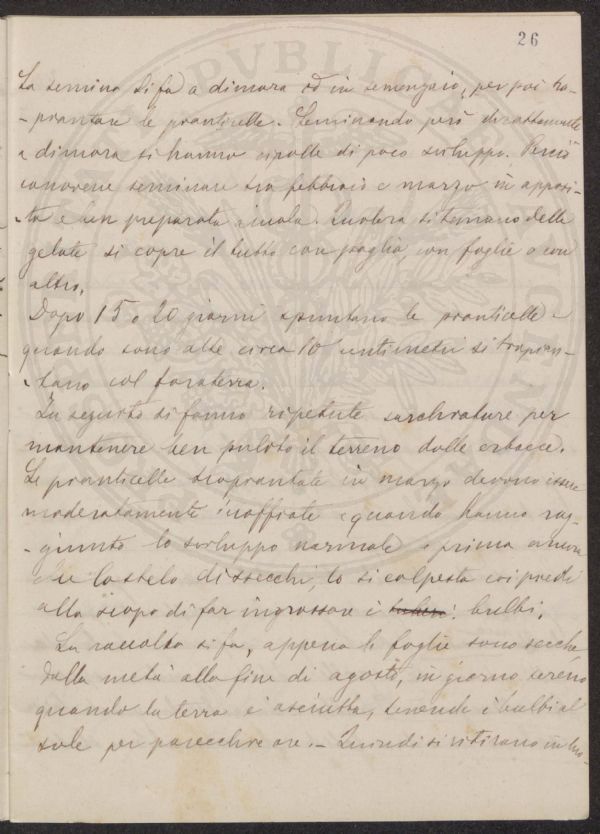 26
La semina si fa a dimora od in semenzaio, per poi tra-
-piantare le pianticelle. Seminando però direttamente
a dimora si hanno cipolle di poco sviluppo. Perciò
conviene seminare tra febbraio e marzo in apposi-
-ta e ben preparata aiuola. Qualora si temano delle
gelate si copre il tutto con paglia con foglie o con
altro.
Dopo 15 o 20 giorni spuntano le pianticelle e
quando sono alte circa 10 centimetri si trapian-
-tano col foraterra.
In seguito si fanno ripetute sarchiature per
mantenere ben pulito il terreno dalle erbacce.
Le pianticelle trapiantate in marzo devono essere
moderatamente inaffiate e quando hanno rag-
-giunto lo sviluppo normale e prima ancora
che lo stelo dissecchi, lo si calpesta coi piedi
allo scopo di far ingrossare i bulbi.
La raccolta si fa, appena le foglie sono secche,
dalla metà alla fine di agosto, in giorno sereno
quando la terra è asciutta, tenendo i bulbi al
sole per parecchie ore. - Quindi si ritirano in luo-